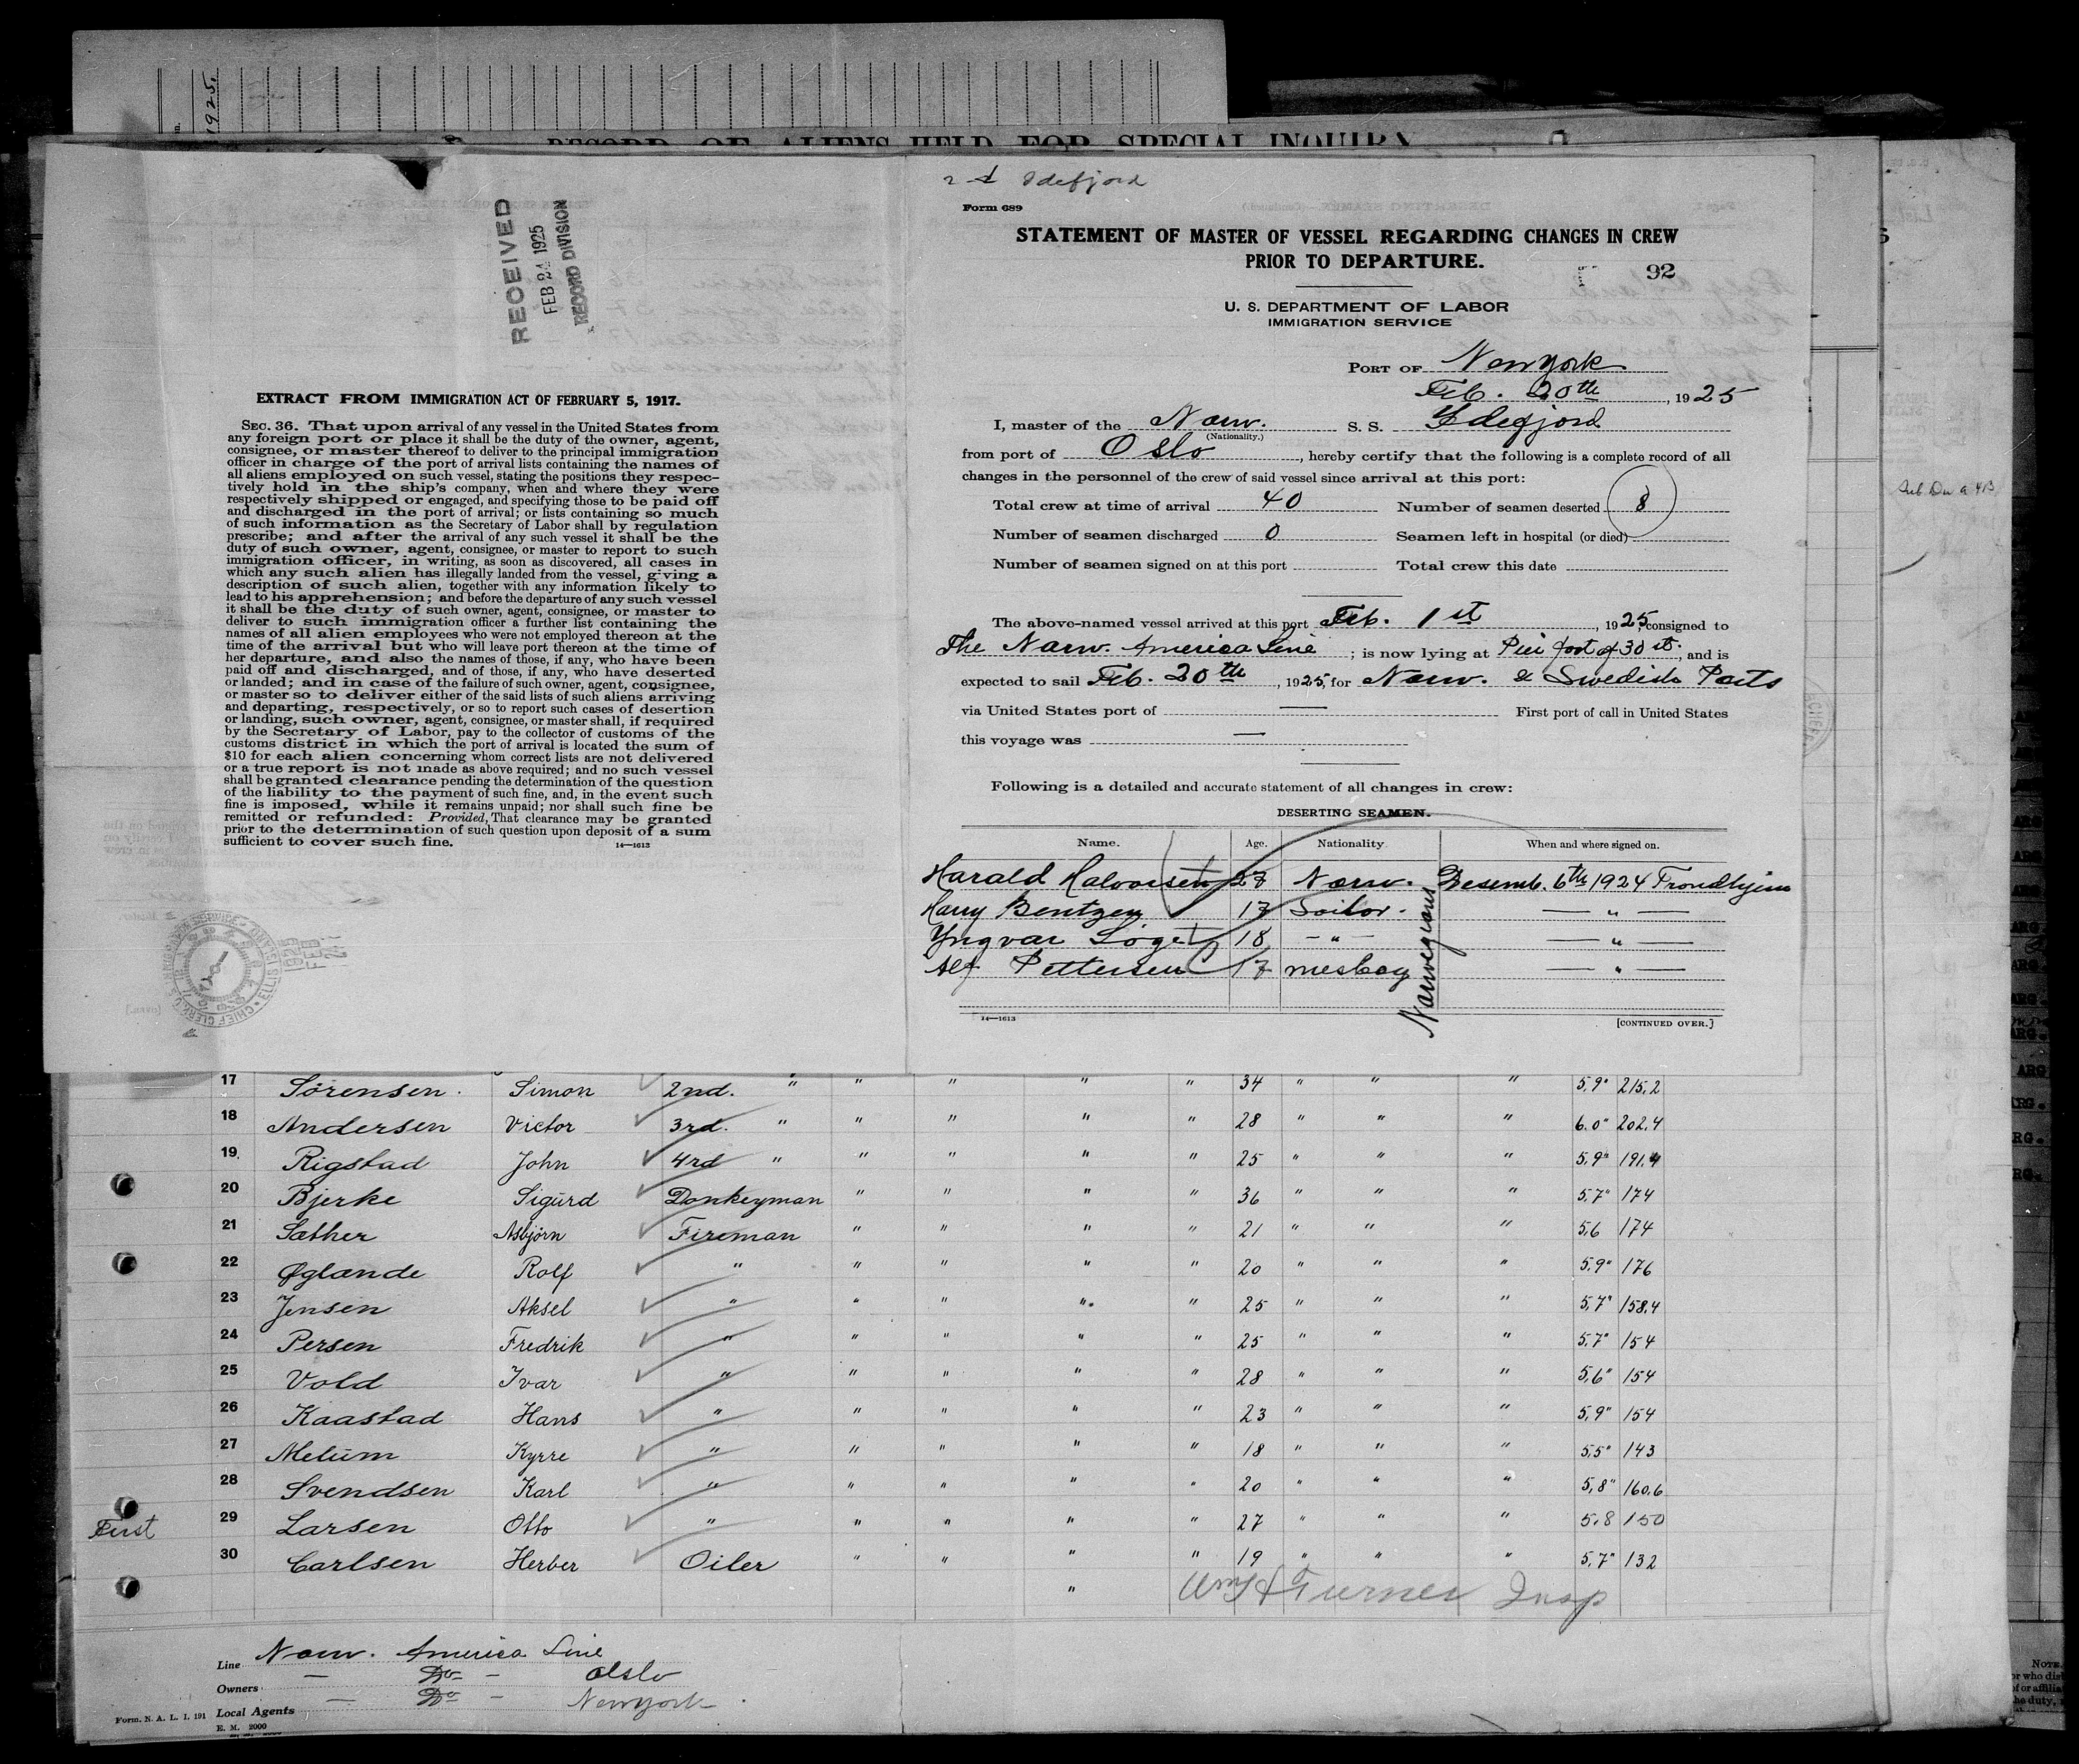 1925.
RECORD OF ALIENS HELD FOR SPECIAL INQUIRY
RECEIVED
FEB 24 1925
RECORD DIVISION
EXTRACT FROM IMMIGRATION ACT OF FEBRUARY 5, 1917.
SEC. 36. That upon arrival of any vessel in the United States from
any foreign port or place it shall be the duty of the owner, agent,
consignee, or master thereof to deliver to the principal immigration
officer in charge of the port of arrival lists containing the names of
all aliens employed on such vessel, stating the positions they respec-
tively hold in the ship's company, when and where they were
respectively shipped or engaged, and specifying those to be paid off
and discharged in the port of arrival; or lists containing so much
of such information as the Secretary of Labor shall by regulation
prescribe; and after the arrival of any such vessel it shall be the
duty of such owner, agent, consignee, or master to report to such
immigration officer, in writing, as soon as discovered, all cases in
which any such alien has illegally landed from the vessel, giving a
description of such alien, together with any information likely to
lead to his apprehension; and before the departure of any such vessel
it shall be the duty of such owner, agent, consignee, or master to
deliver to such immigration officer a further list containing the
names of all alien employees who were not employed thereon at the
time of the arrival but who will leave port thereon at the time of
her departure, and also the names of those, if any, who have been
paid off and discharged, and of those, if any, who have deserted
or landed; and in case of the failure of such owner, agent, consignee,
or master so to deliver either of the said lists of such aliens arriving
and departing, respectively, or so to report such cases of desertion
or landing, such owner, agent, consignee, or master shall, if required
by the Secretary of Labor, pay to the collector of customs of the
customs district in which the port of arrival is located the sum of
$10 for each alien concerning whom correct lists are not delivered
or a true report is not made as above required; and no such vessel
shall be granted clearance pending the determination of the question
of the liability to the payment of such fine, and, in the event such
fine is imposed, while it remains unpaid; nor shall such fine be
remitted or refunded: Provided, That clearance may be granted
prior to the determination of such question upon deposit of a sum
sufficient to cover such fine.
14—1613
Idefjord
Form 689
STATEMENT OF MASTER OF VESSEL REGARDING CHANGES IN CREW
PRIOR TO DEPARTURE.
92
U. S. DEPARTMENT OF LABOR
IMMIGRATION SERVICE
PORT OF New York
Feb. 20th, 1925
I, master of the Norw. S. S. Idefjord
(Nationality.)
from port of Oslo, hereby certify that the following is a complete record of all
changes in the personnel of the crew of said vessel since arrival at this port:
Total crew at time of arrival 40 Number of seamen deserted 8
Number of seamen discharged 0 Seamen left in hospital (or died)
Number of seamen signed on at this port Total crew this date
The above-named vessel arrived at this port Feb. 1st, 1925, consigned to
The Norw. America Line; is now lying at Pier foot of 30 st., and is
expected to sail Feb. 20th, 1925, for Norw. & Swedish Ports
via United States port of — First port of call in United States
this voyage was —
Following is a detailed and accurate statement of all changes in crew:
DESERTING SEAMEN.
Name. Age. Nationality When and where signed on.
Harald Halvorsen 27 Norw. Desemb. 6th 1924 Trondhjem
Harry Bentzen 17 Sailor. — " —
Yngvar 18 — " — — " —
Alf Pettersen 17 mesboy — " —
Norwegians
14—1613
[CONTINUED OVER.]
17 Sørensen. Simon 2nd. " " " " " 34 " " " 5,9" 215,2
18 Andersen Victor 3rd. " " " " " 28 " " " 6.0" 202.4
19 Rigstad John 4rd " " " " " 25 " " " 5,9" 191.4
20 Bjerke Sigurd Donkeyman " " " " 36 " " " 5,7" 174
21 Sæther Asbjørn Fireman " " " " 21 " " " 5,6 174
22 Øglænde Rolf " " " " " 20 " " " 5,9" 176
23 Jensen Aksel " " " " " 25 " " " 5,7" 158,4
24 Persen Fredrik " " " " " 25 " " " 5,7" 154
25 Vold Ivar " " " " " 28 " " " 5,6" 154
26 Kaastad Hans " " " " " 23 " " " 5,9" 154
27 Melum Kyrre " " " " " 18 " " " 5,5" 143
28 Svendsen Karl " " " " " 20 " " " 5,8" 160,6
First 29 Larsen Otto " " " " " 27 " " " 5,8 150
30 Carlsen Herber Oiler " " " " 19 " " " 5,7" 132
" Wm H Turner Insp
Line Norw. America Line
Owners — Do — Oslo
Local Agents — Do — New York.
Form. N. A. L. I. 191
E. M. 2000